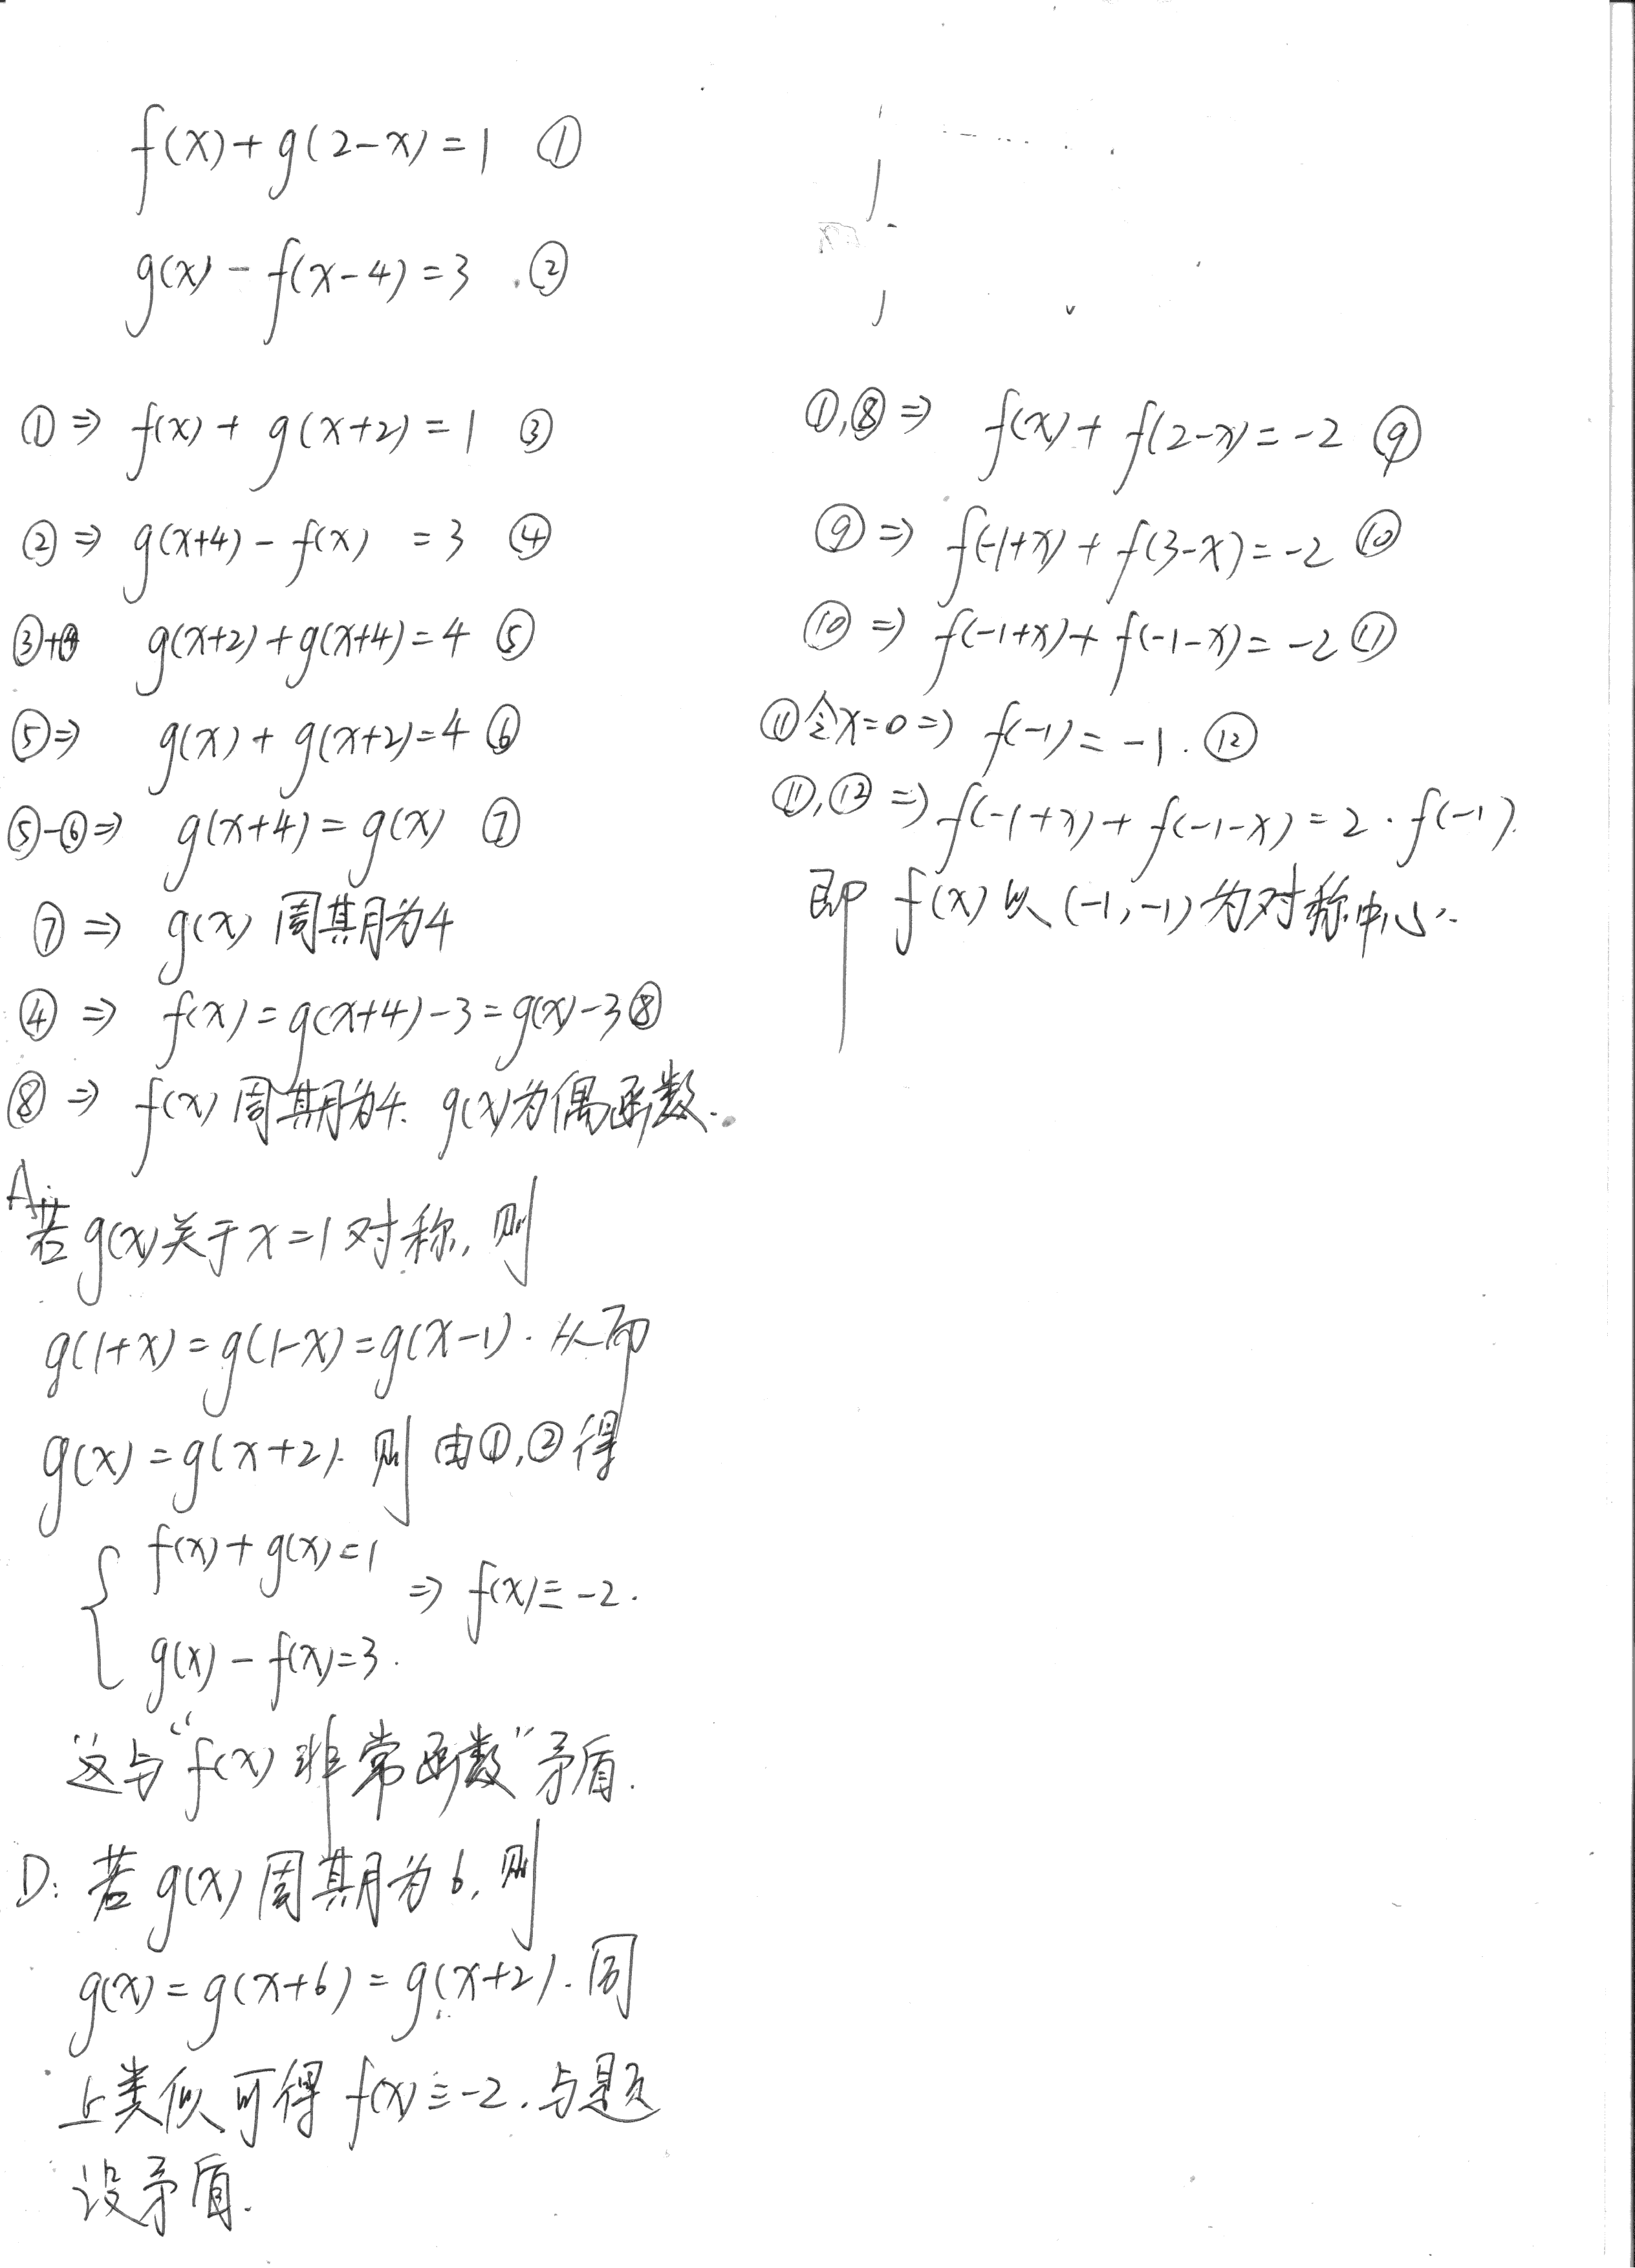 f(x)+g(2-x)=1 ①
g(x)-f(x-4)=3 .②
①⇒ f(x)+g(x+2)=1 ③
②⇒ g(x+4)-f(x) =3 ④
③+④ g(x+2)+g(x+4)=4 ⑤
⑤⇒ g(x)+g(x+2)=4 ⑥
⑤-⑥⇒ g(x+4)=g(x) ⑦
⑦⇒ g(x) 周期为4
④⇒ f(x)=g(x+4)-3=g(x)-3⑧
⑧⇒ f(x)周期为4. g(x)为偶函数.
A:
若g(x)关于x=1对称,则
g(1+x)=g(1-x)=g(x-1).从而
g(x)=g(x+2).则由①,②得
{ f(x)+g(x)=1
⇒ f(x)≡-2.
g(x)-f(x)=3.
这与“f(x)非常函数”矛盾.
D:若g(x)周期为6,则
g(x)=g(x+6)=g(x+2).同
上类似可得f(x)≡-2.与题
设矛盾.
①,⑧⇒ f(x)+f(2-x)=-2 ⑨
⑨⇒ f(-1+x)+f(3-x)=-2 ⑩
⑩⇒ f(-1+x)+f(-1-x)=-2⑪
⑪令x=0⇒ f(-1)=-1.⑫
⑪,⑫⇒ f(-1+x)+f(-1-x)=2·f(-1).
即 f(x)以(-1,-1)为对称中心.